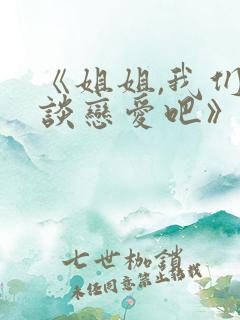 《姐姐,我们
談戀愛吧》
七世枷鎖
未経同意禁止転載